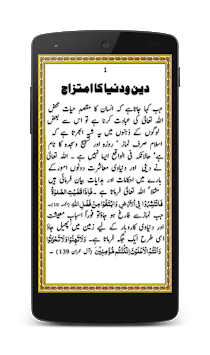 1
دین و دنیا کا امتزاج
جب کہا جاتا ہے کہ انسان کا مقصدِ حیات محض
اللہ تعالیٰ کی عبادت کرنا ہے تو اس سے بعض
لوگوں کے ذہنوں میں یہ شبہ ابھرتا ہے کہ
اسلام صرف نماز ' روزہ اور تسبیح و سجدہ کا نام
ہے' حالانکہ فی الواقع ایسا نہیں ہے ۔ اللہ تعالیٰ
نے دینی اور دنیاوی معاشرت دونوں امور کے
بارے میں احکامات اور ہدایات بیان فرمائی ہیں
مثلاً اللہ تعالیٰ فرماتا ہے ۔ فَاِذَا قُضِیَتِ الصَّلٰوۃُ
فَانْتَشِرُوْا فِی الْاَرْضِ وَابْتَغُوْا مِنْ فَضْلِ اللّٰہِ
جب نماز سے فارغ ہو جاؤ تو فوراً اسبابِ معیشت
اور دنیاوی کاروبار کے لیے زمین میں پھیل جاؤ
اسی طرح ایک جگہ فرماتا ہے۔ وَلَا تَہِنُوْا وَلَا تَحْزَنُوْا
وَاَنْتُمُ الْاَعْلَوْنَ اِنْ کُنْتُمْ مُّؤْمِنِیْنَ (آل عمران 139) ۔